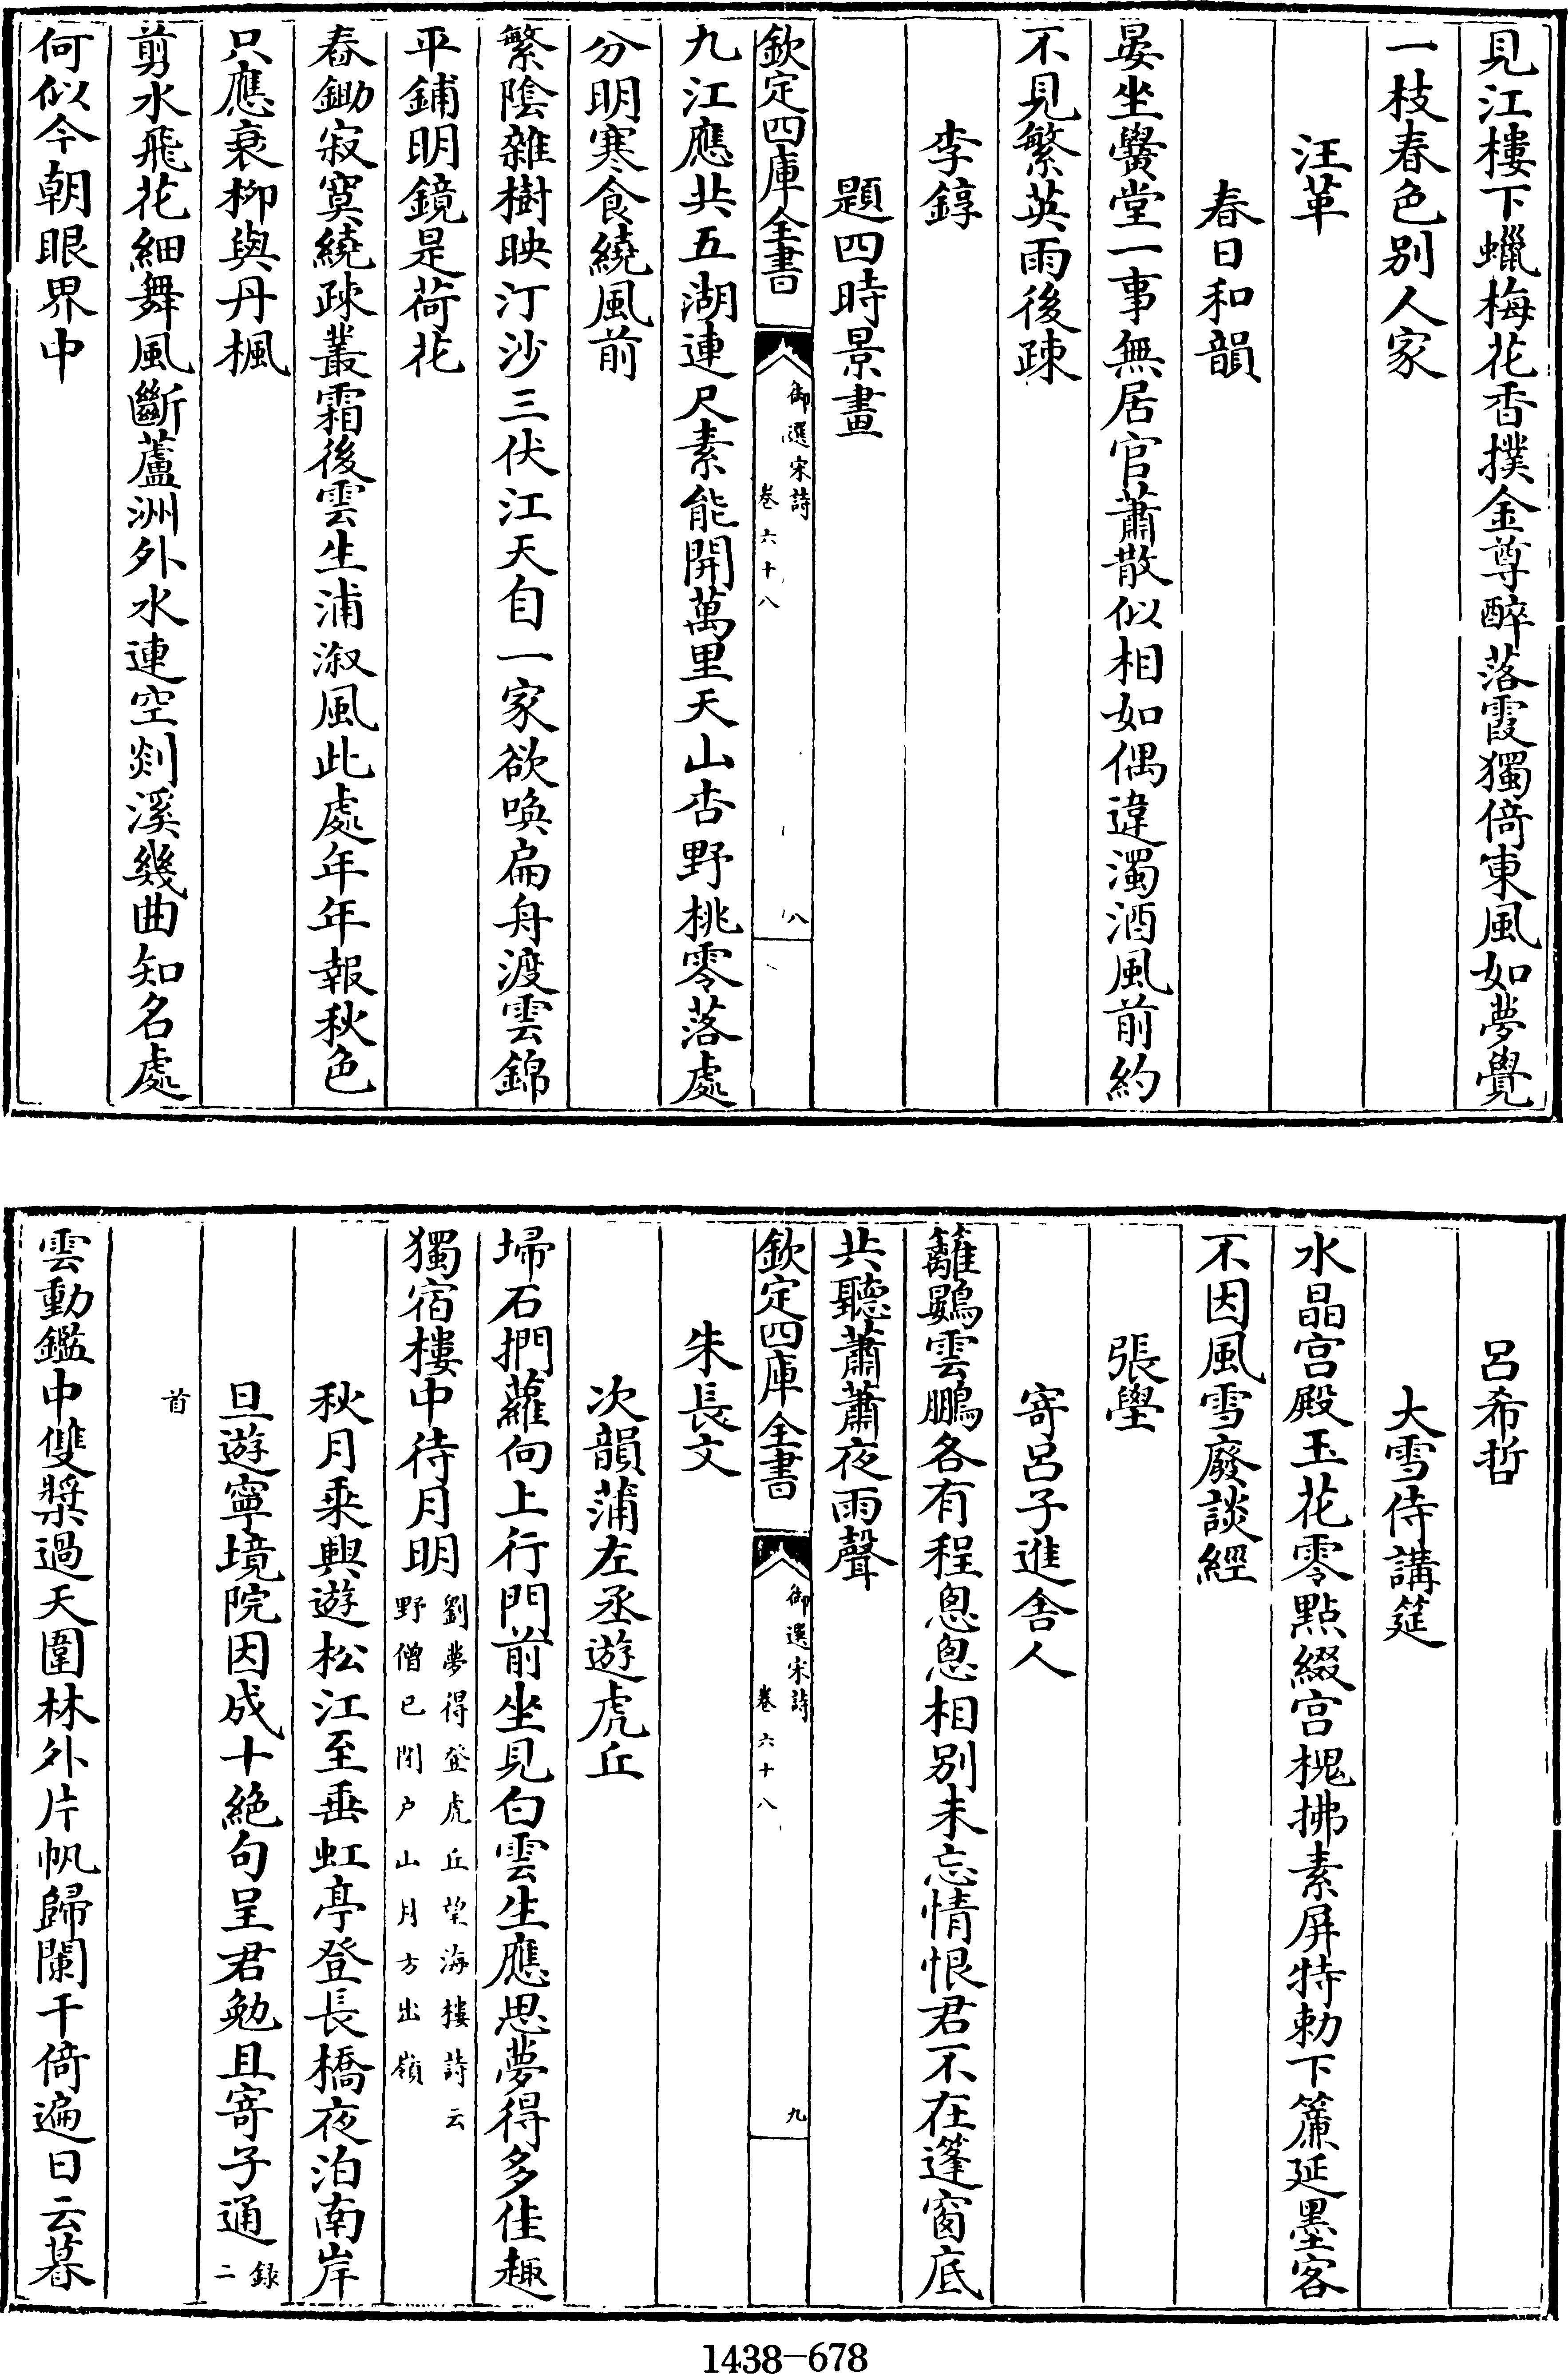 見江樓下蠟梅花香撲金尊醉落霞獨倚東風如夢覺
一枝春色别人家
汪革
春日和韻
晏坐黌堂一事無居官蕭散似相如偶違濁酒風前約
不見繁英雨後疎
李錞
題四時景畫
欽定四庫全書
御選宋詩
卷六十八
八
九江應共五湖連尺素能開萬里天山杏野桃零落處
分明寒食繞風前
繁陰雜樹映汀沙三伏江天自一家欲喚扁舟渡雲錦
平鋪明鏡是荷花
舂鋤寂寞繞疎叢霜後雲生浦溆風此處年年報秋色
只應衰栁與丹楓
剪水飛花細舞風斷蘆洲外水連空剡溪幾曲知名處
何似今朝眼界中
呂希哲
大雪侍講筵
水晶宫殿玉花零點綴宫槐拂素屏特勅下簾延墨客
不因風雪廢談經
張壆
寄呂子進舍人
籬鷃雲鵬各有程匆匆相别未忘情恨君不在篷窗底
共聽蕭蕭夜雨聲
欽定四庫全書
御選宋詩
卷六十八
九
朱長文
次韻蒲左丞遊虎丘
埽石捫蘿向上行門前坐見白雲生應思夢得多佳趣
獨宿樓中待月明
劉夢得登虎丘望海樓詩云
野僧已閉户山月方出嶺
秋月乘興遊松江至垂虹亭登長橋夜泊南岸
旦遊寧境院因成十絶句呈君勉且寄子通
録
二
首
雲動鑑中雙槳過天圍林外片帆歸闌干倚遍日云暮
1438-678